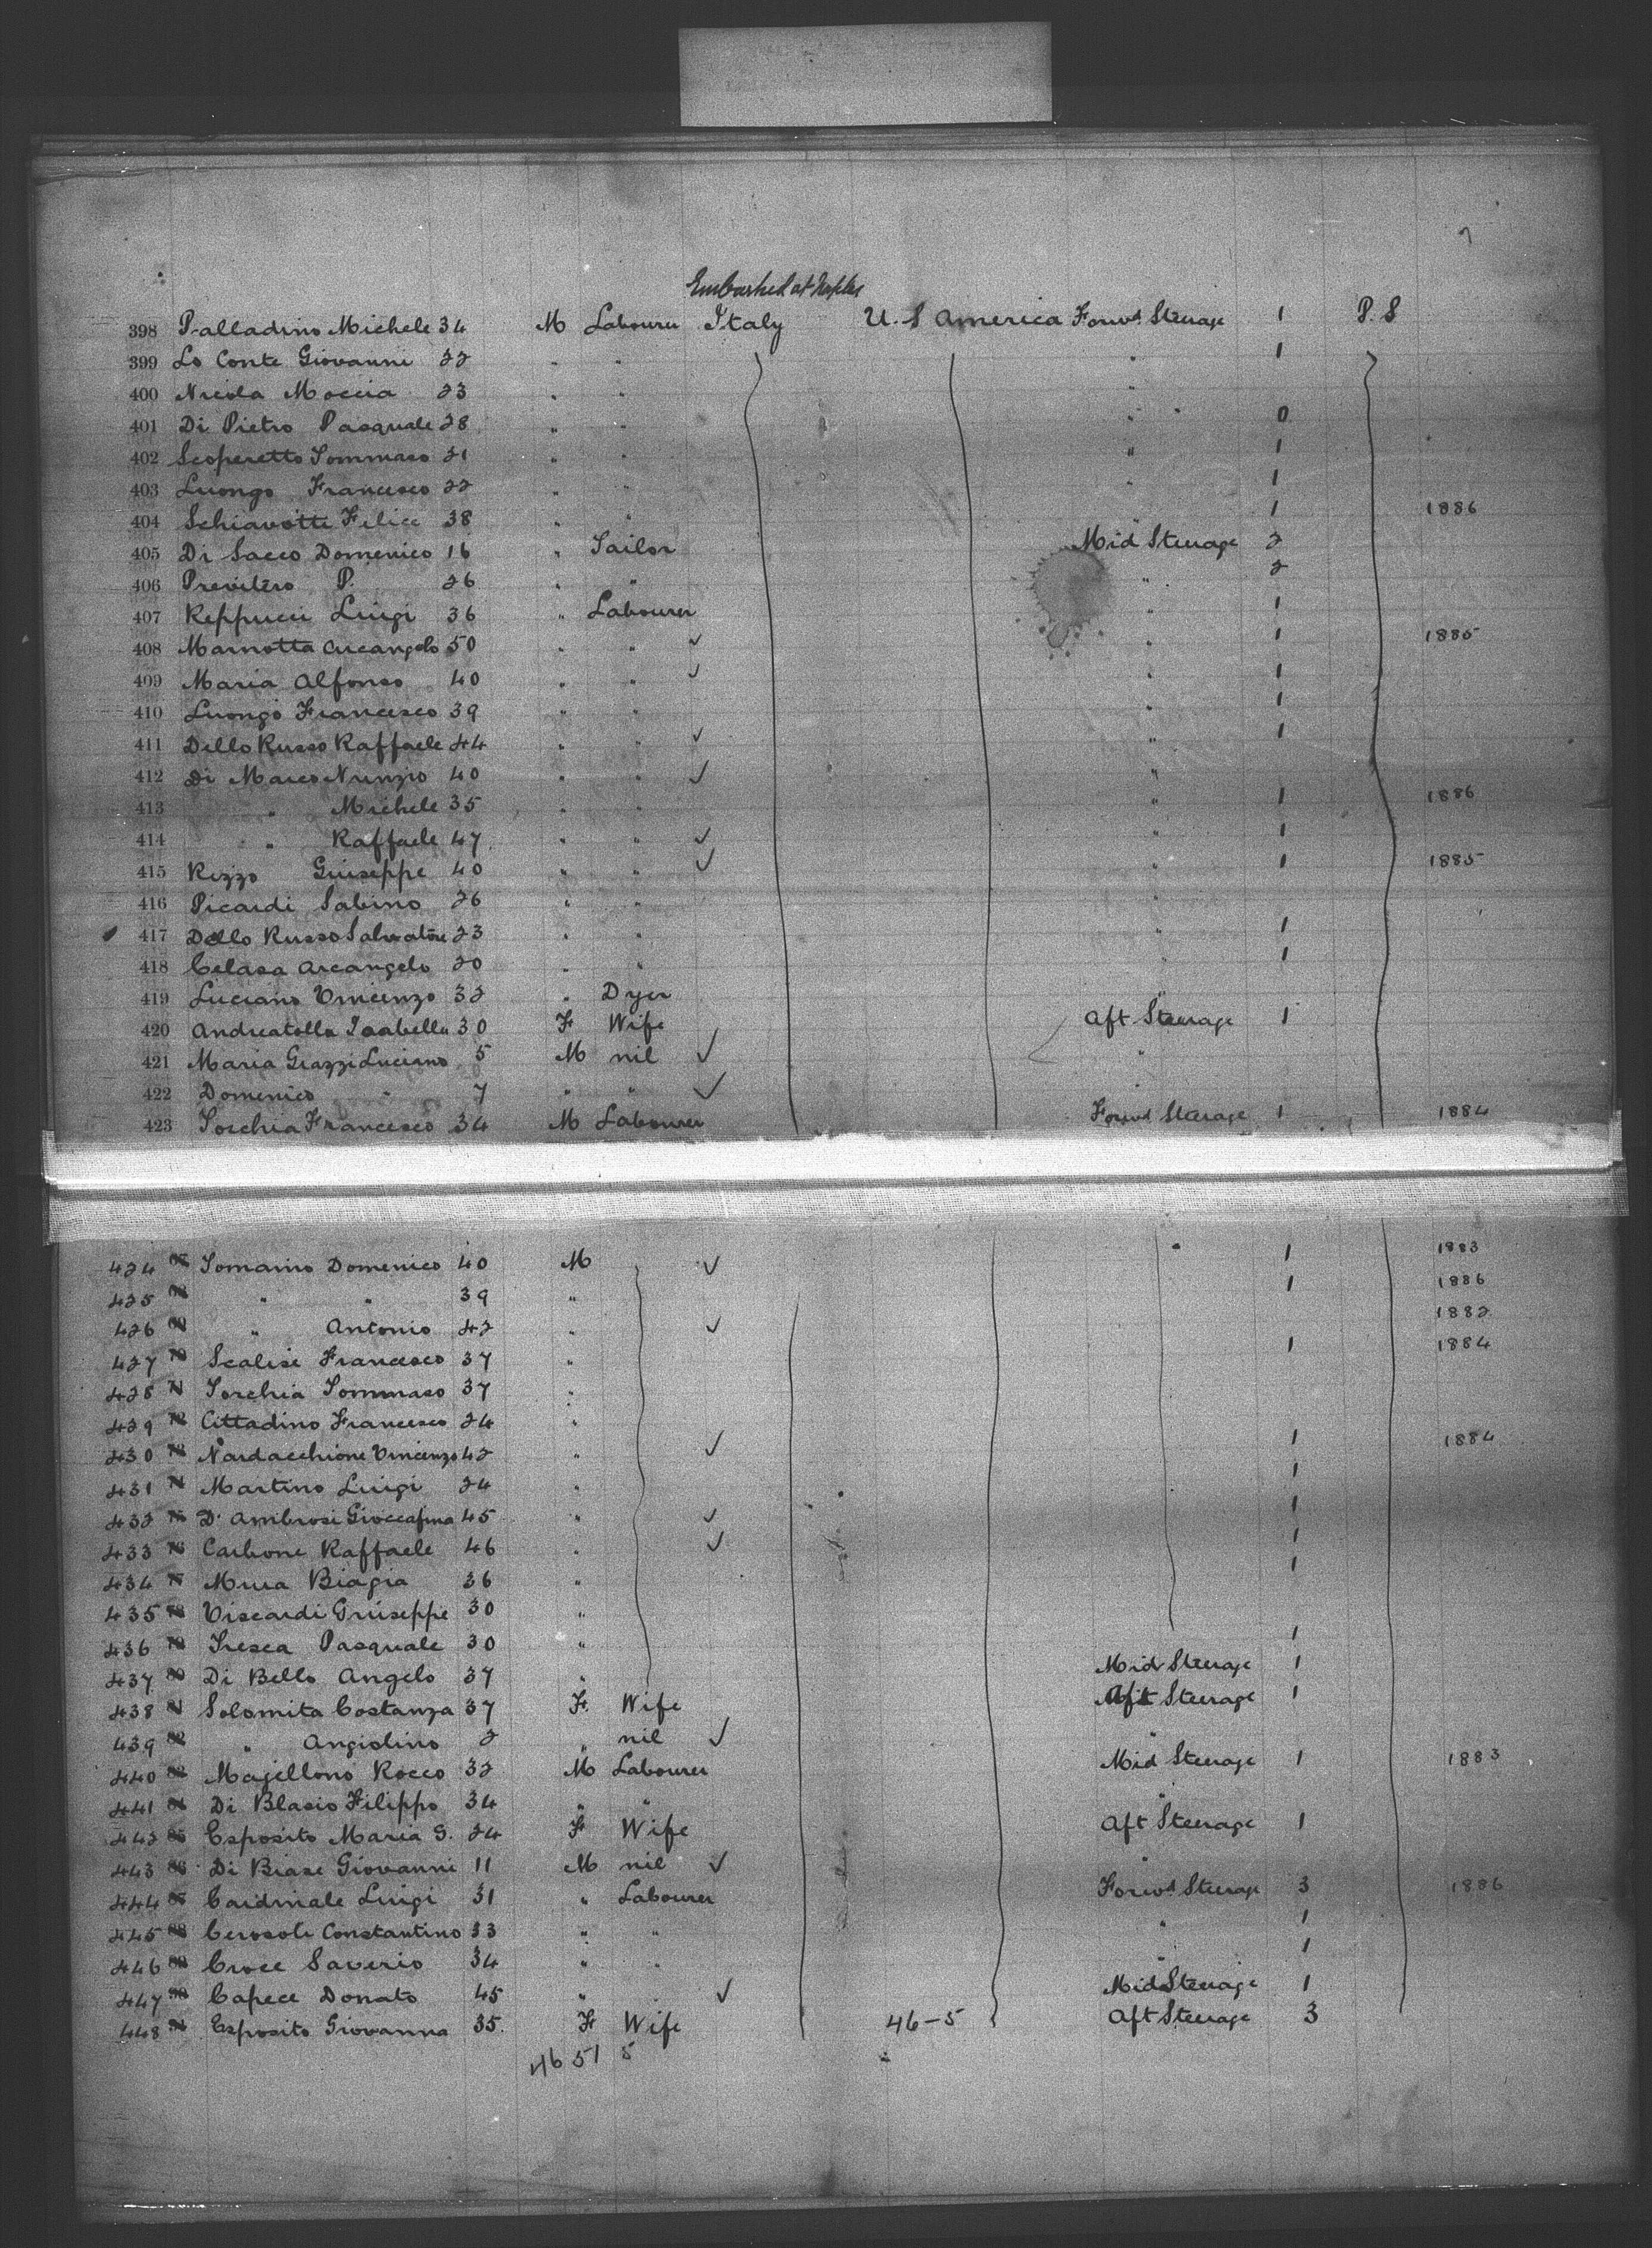 Embarked at Naples
398 Palladino Michele 34 M Labourer Italy U. S America Forwd Steerage 1 P. S
399 Lo Conte Giovanni 22 " " " 1
400 Nicola Moccia 23 " " "
401 Di Pietro Pasquale 28 " " " " 0
402 Scoperetto Tommaso 21 " " " 1
403 Luongo Francesco 22 " " " 1
404 Schiavotti Felice 38 " " " 1 1886
405 Di Sacco Domenico 16 " Tailor Mid Steerage 2
406 P. 26 " " " 2
407 Reppucci Luigi 36 " Labourer " 1
408 Marnotta Arcangelo 50 " " ✓ " 1 1885
409 Maria Alfonso 40 " " ✓ " 1
410 Luongo Francesco 39 " " " 1
411 Dello Russo Raffaele 44 " " ✓ " 1
412 Di Marco Nunzio 40 " " ✓ "
413 " Michele 35 " " " 1 1886
414 " Raffaele 47 " " ✓ " 1
415 Rizzo Giuseppe 40 " " ✓ " 1 1885
416 Picardi Sabino 26 " " "
417 Dello Russo Salvatore 23 " " " 1
418 Celasa Arcangelo 20 " " " 1
419 Luciano Vincenzo 32 " Dyer "
420 Andreatolla Isabella 30 F Wife Aft Steerage 1
421 Maria Grazzi Luciano 5 M nil ✓ "
422 Domenico " 7 " " ✓ "
423 Torchia Francesco 34 M Labourer Forwd Steerage 1 1884
424 Tomaino Domenico 40 M ✓ " 1 1883
425 " " 39 " 1 1886
426 " Antonio 42 " ✓ 1882
427 Scalise Francesco 37 " 1 1884
428 Torchia Tommaso 37 "
429 Cittadino Francesco 24 "
430 Nardacchione Vincenzo 42 " ✓ 1 1884
431 Martino Luigi 24 " 1
432 D'Ambrosi 45 " ✓ 1
433 Carbone Raffaele 46 " ✓ 1
434 Biagia 36 " 1
435 Viscardi Giuseppe 30 "
436 Tresca Pasquale 30 " 1
437 Di Bello Angelo 37 " Mid Steerage 1
438 Solomita Costanza 37 F. Wife Aft Steerage 1
439 " Angiolino 2 " nil ✓ "
440 Magellono Rocco 32 M Labourer Mid Steerage 1 1883
441 Di Blasio Filippo 34 " " "
442 Esposito Maria G. 24 F Wife Aft Steerage 1
443 Di Biase Giovanni 11 M nil ✓ "
444 Cardinale Luigi 31 " Labourer Forwd Steerage 3 1886
445 Cerosoli Constantino 33 " " " 1
446 Croce Saverio 34 " " " 1
447 Capece Donato 45 " " ✓ Mid Steerage 1
448 Esposito Giovanna 35 F Wife 46-5 Aft Steerage 3
46 51 5